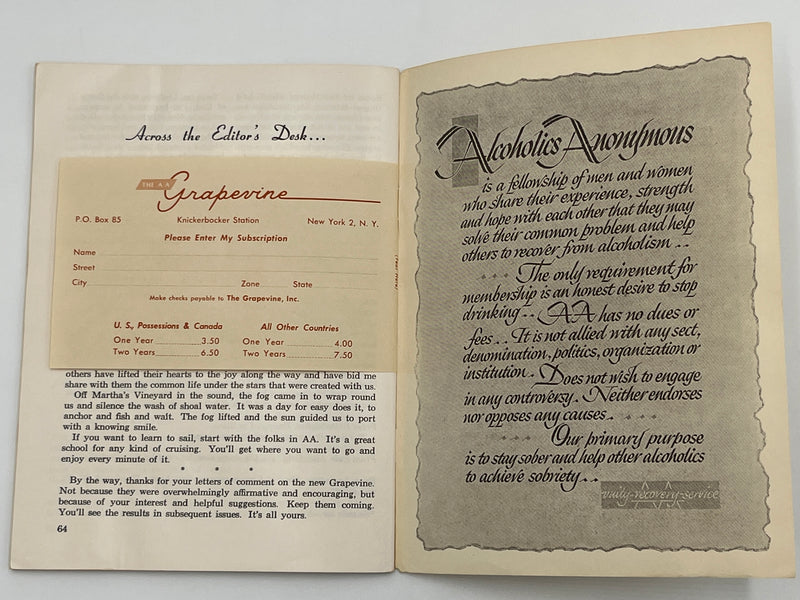 Across the Editor's Desk...
THE AA
Grapevine
P.O. Box 85 Knickerbocker Station New York 2, N. Y.
Please Enter My Subscription
Name
Street
City Zone State
Make checks payable to The Grapevine, Inc.
U. S., Possessions & Canada All Other Countries
One Year 3.50 One Year 4.00
Two Years 6.50 Two Years 7.50
others have lifted their hearts to the joy along the way and have bid me
share with them the common life under the stars that were created with us.
Off Martha's Vineyard in the sound, the fog came in to wrap round
us and silence the wash of shoal water. It was a day for easy does it, to
anchor and fish and wait. The fog lifted and the sun guided us to port
with a knowing smile.
If you want to learn to sail, start with the folks in AA. It's a great
school for any kind of cruising. You'll get where you want to go and
enjoy every minute of it.
• • •
By the way, thanks for your letters of comment on the new Grapevine.
Not because they were overwhelmingly affirmative and encouraging, but
because of your interest and helpful suggestions. Keep them coming.
You'll see the results in subsequent issues. It's all yours.
64
Alcoholics Anonymous
is a fellowship of men and women
who share their experience, strength
and hope with each other that they may
solve their common problem and help
others to recover from alcoholism ..
... The only requirement for
membership is an honest desire to stop
drinking.. AA has no dues or
fees.. It is not allied with any sect,
denomination, politics, organization or
institution. Does not wish to engage
in any controversy. Neither endorses
nor opposes any causes. ...
... Our primary purpose
is to stay sober and help other alcoholics
to achieve sobriety..
unity-recovery-service